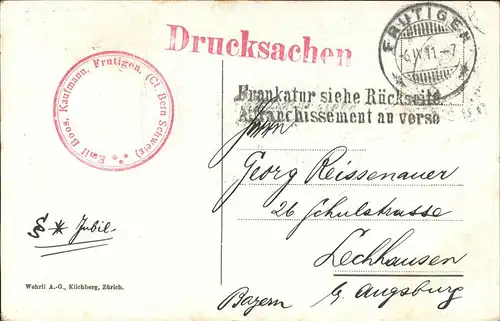 Drucksachen
FRUTIGEN
6.IX.11.-7
Frankatur siehe Rückseite.
Affranchissement au verso
Emil Boos, Kaufmann, Frutigen, (Ct. Bern Schweiz)
Herrn
Georg Reissenauer
26 Schulstrasse
Lechhausen
b/ Augsburg
Bayern
Jubil-
Wehrli A.-G., Kilchberg, Zürich.